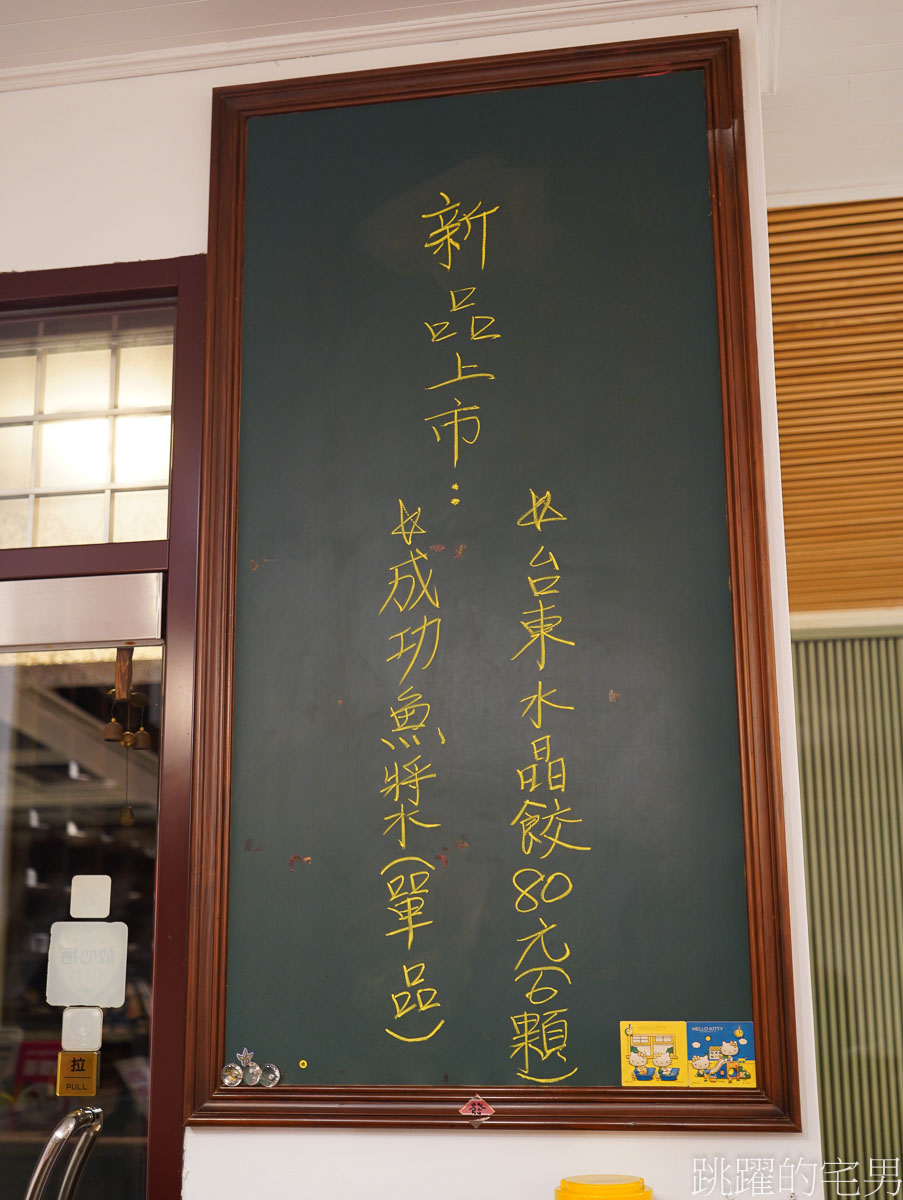 新品上市：
☆台東水晶餃80元(6顆)
☆成功魚漿(單品)
HELLO KITTY
HELLO KITTY
拉
PULL
跳躍的宅男